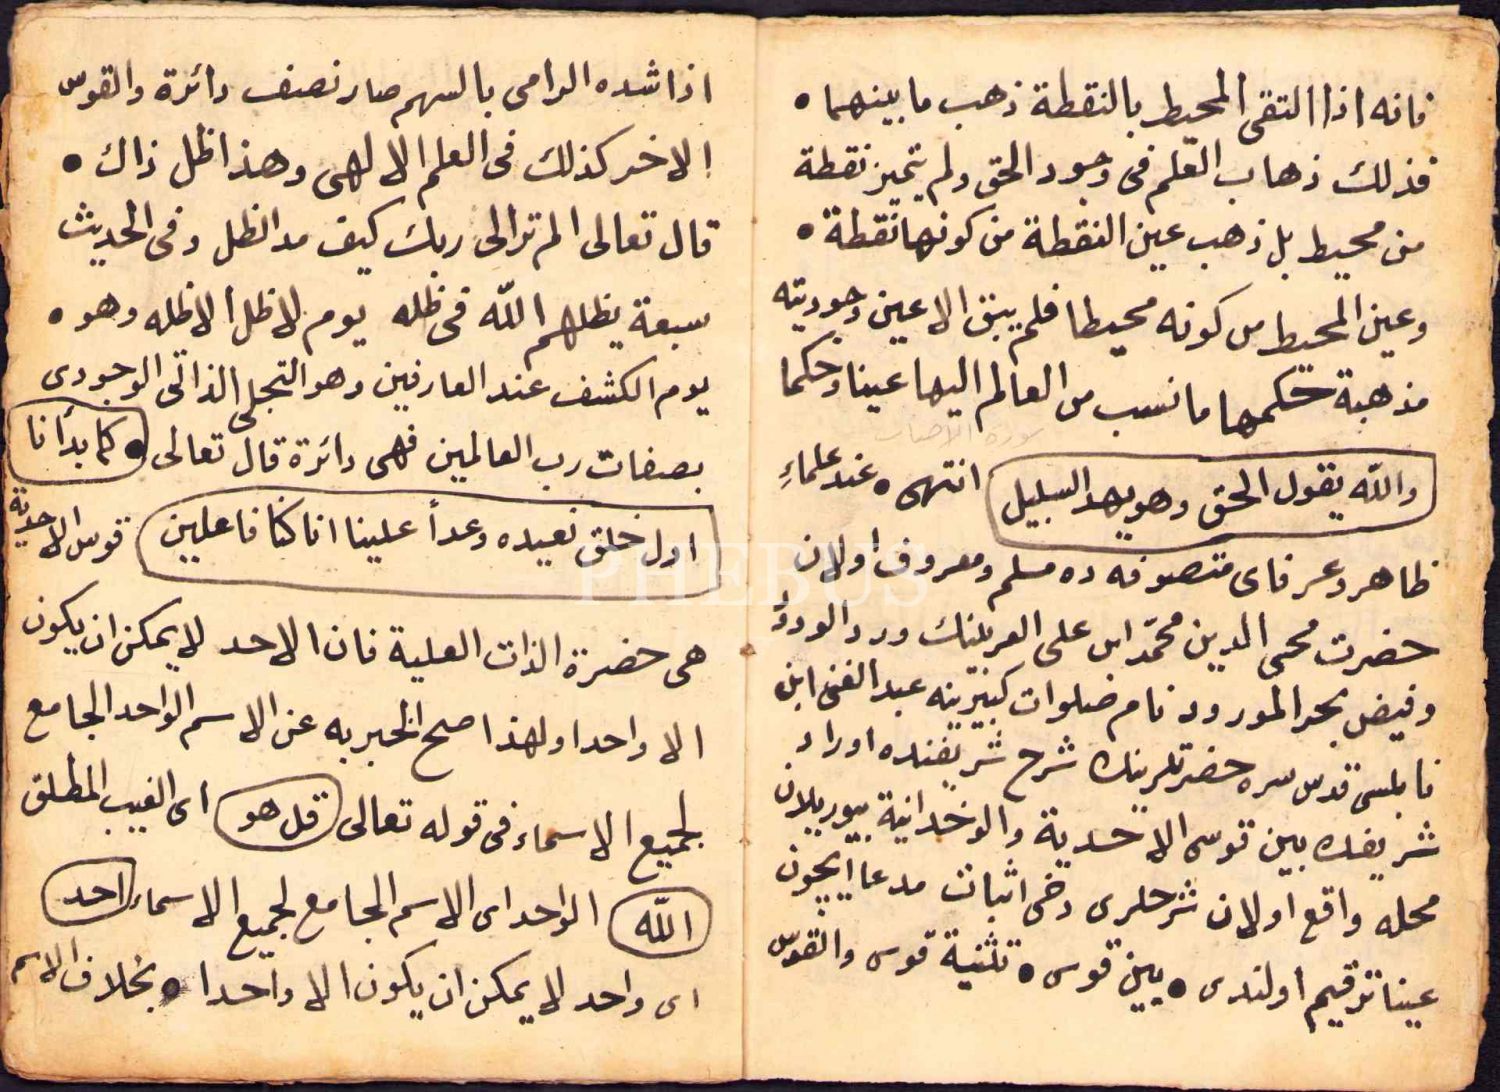 فانه اذا التقى المحيط بالنقطة ذهب ما بينهما •
فذلك ذهاب العلم فى وجود الحق ولم يتميز نقطة
من محيط بل ذهب عين النقطة من كونها نقطة •
وعين المحيط من كونه محيطا فلم يبق الا عين وجوديته
مذهبة حكمها ما نسب من العالم اليها عينا وحكما
والله يقول الحق وهو يهد السبيل انتهى • عند علماءِ
ظاهر وعرفاى متصوفه ده مسلم ومعروف اولان
حضرت محى الدين محمد ابن على العربينك ورد الورود
وفيض بحر المورود نام صلوات كبيرينه عبد الغنى ابن
نابلسى قدس سره حضرتلرينك شرح شريفنده اوراد
شريفك بين قوسى الاحدية والواحدانية بيوريلان
محله واقع اولان شرحلرى دخى اثبات مدعا ايچون
عينا ترقيم اولندى • بين قوسى • تثنية قوس والقوس
اذا شده الرامى بالسهم صار نصف دائرة والقوس
الاخر كذلك فى العلم الالهى وهذا ظل ذاك •
قال تعالى الم تر الى ربك كيف مد الظل وفى الحديث
سبعة يظلهم الله فى ظله يوم لا ظل الا ظله وهو •
يوم الكشف عند العارفين وهو التجلى الذاتى الوجودى
بصفات رب العالمين فهى دائرة قال تعالى • كما بدأنا
اول خلق نعيده وعدأ علينا انا كنا فاعلين قوس الاحدية
هى حضرة الذات العلية فان الاحد لا يمكن ان يكون
الا واحدا ولهذا اصح الخبر به عن الاسم الواحد الجامع
لجميع الاسماء فى قوله تعالى قل هو اى الغيب المطلق
الله الواحد اى الاسم الجامع لجميع الاسماء احد
اى واحد لا يمكن ان يكون الا واحدا • بخلاف الاسم
PHEBUS